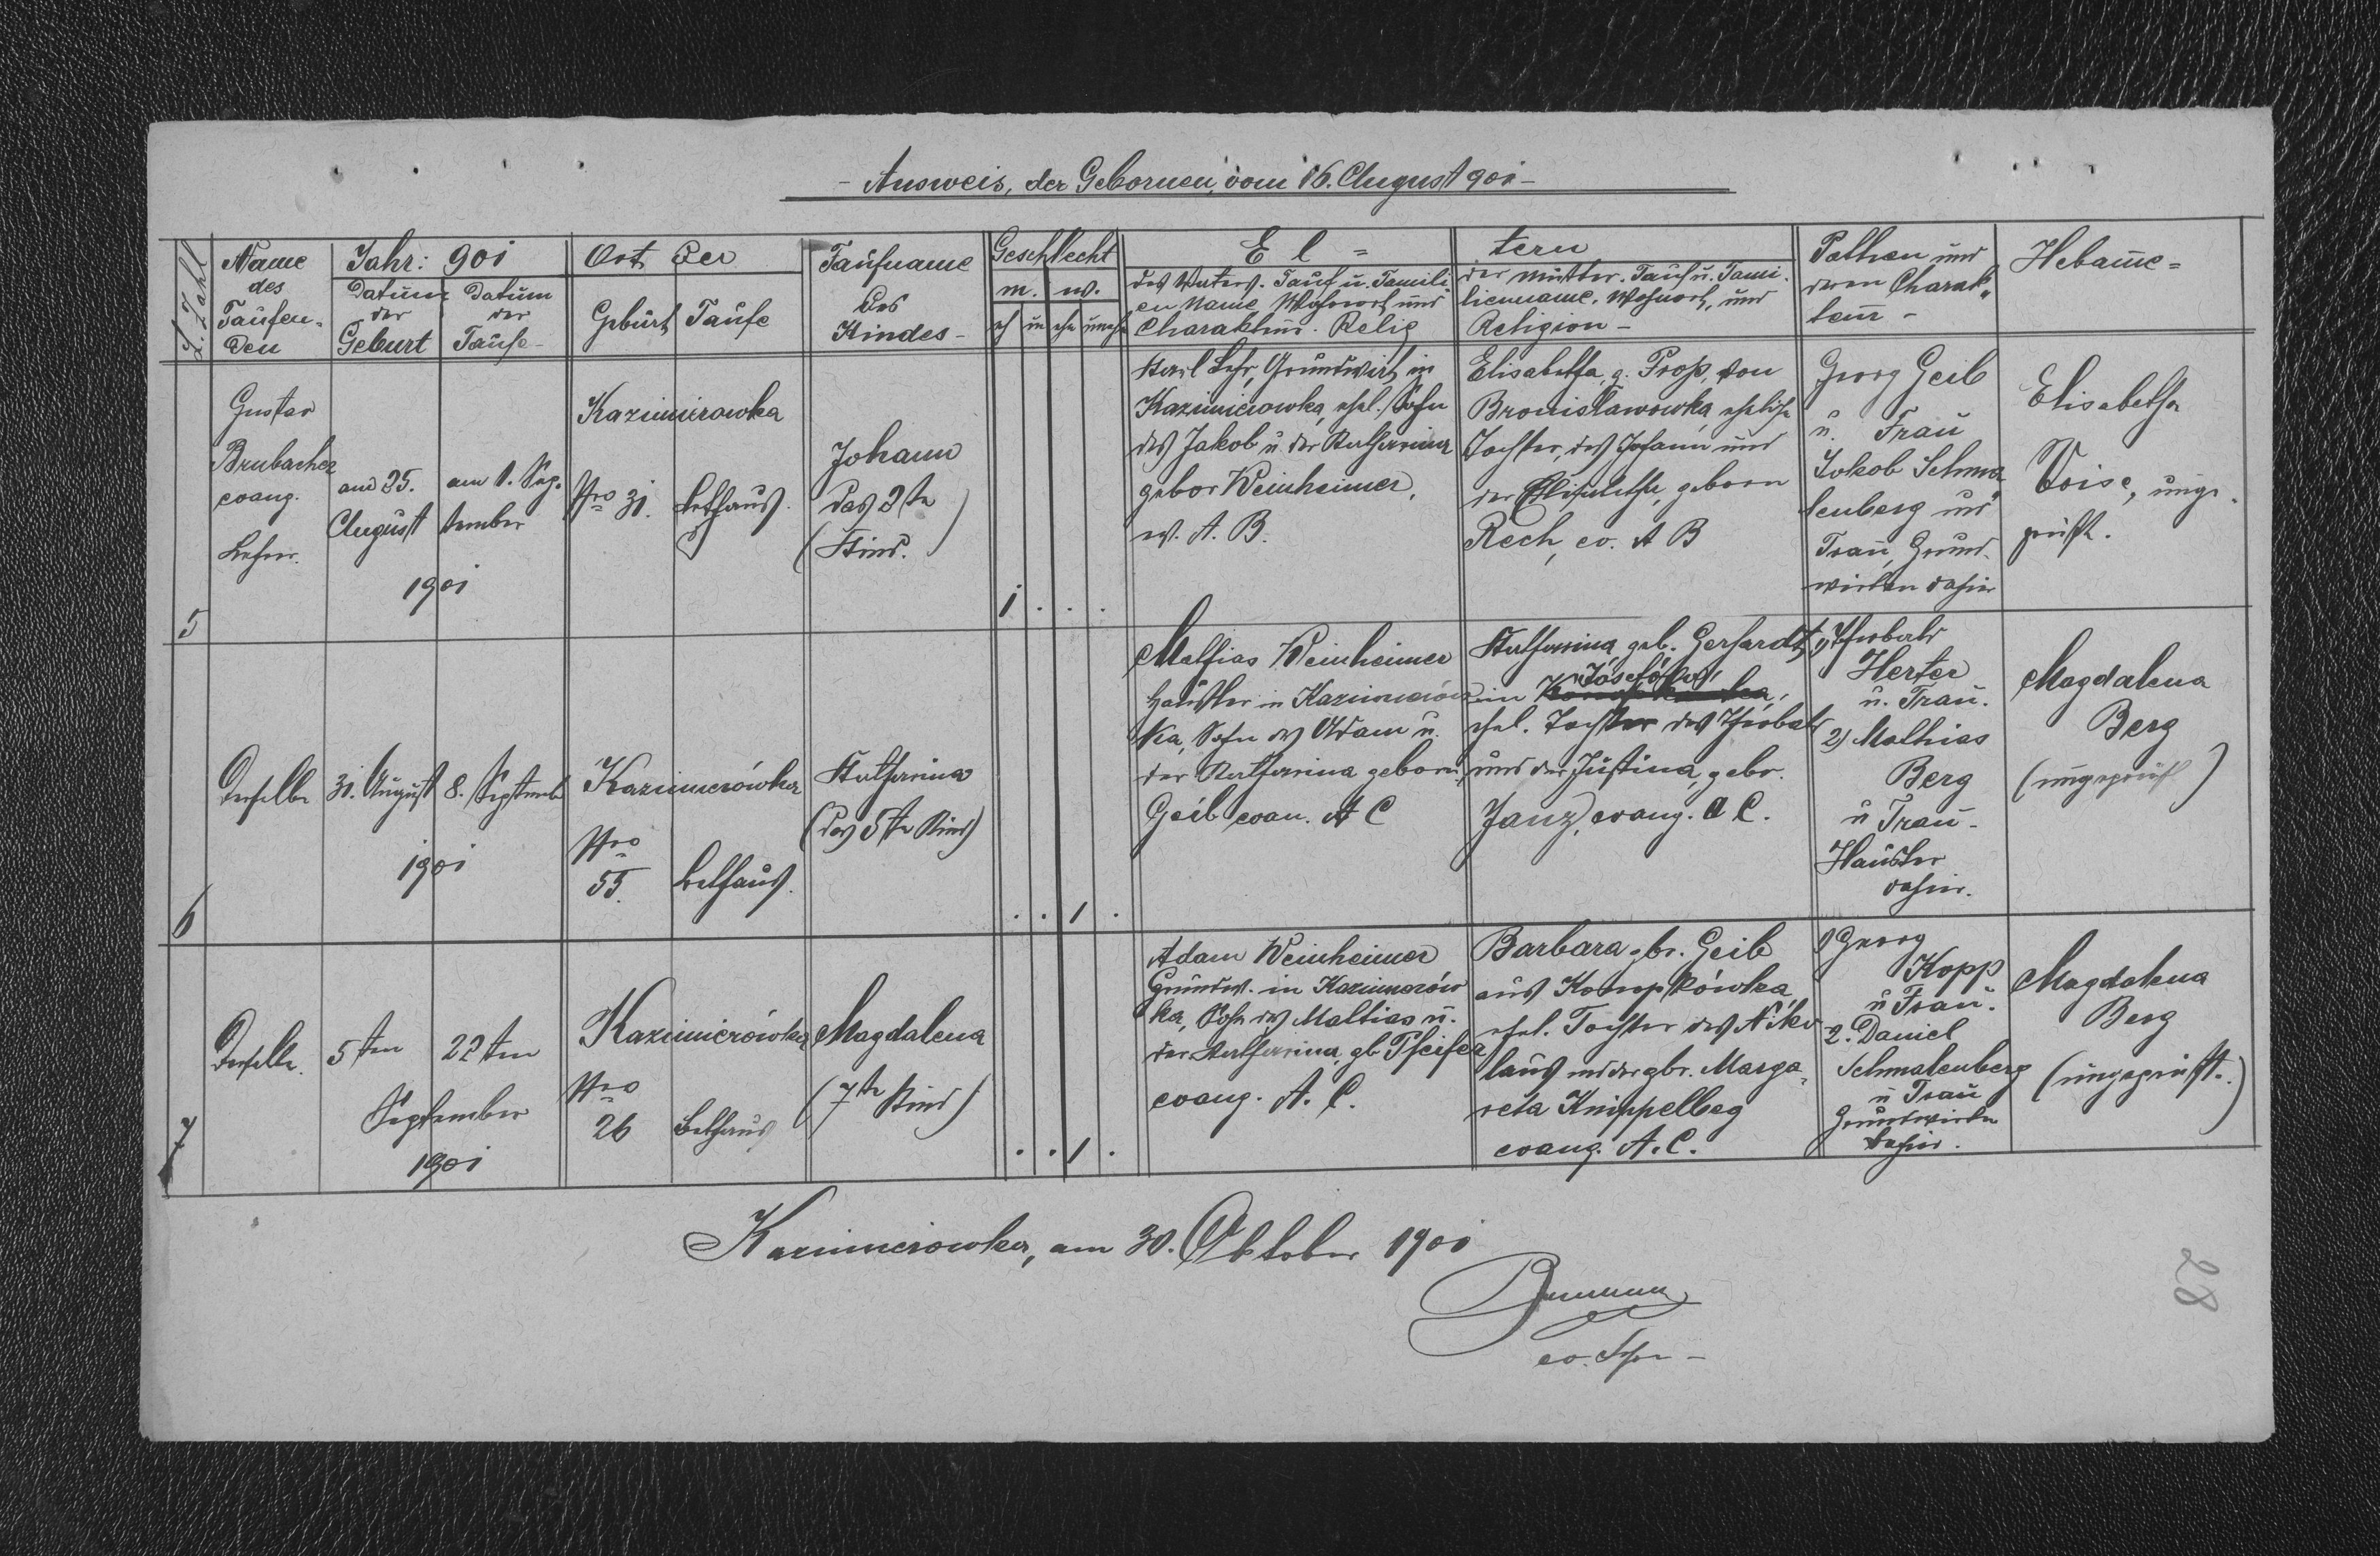 - Ausweis, der Gebornen, vom 16. August 901 -
L. Zahl
Name
des
Taufen=
den
Jahr: 901
Datum
der
Geburt
Datum
der
Taufe-
Ort der
Geburt
Taufe
Taufname
des
Kindes-
Geschlecht
m.
w.
eh
un
ehe
uneh
El=
des Vaters. Tauf u. Famili
en Name, Wohnort und
Charakter. Relig
tern
der Mutter. Tauf u. Fami-
lienname, Wohnort, und
Religion -
Pathen und
deren Charak„
teur -
Hebamme=
5
Gustav
Brubacher
evang.
Lehrer.
am 25.
August
am 1. Sep.
tember
1901
Kazimirowka
Nro 31.
Bethaus.
Johann
das 2te
(Kind.)
1 . . .
Karl Lehr, Grundwirt in
Kazimierowka, ehel. Sohn
des Jakob u. der Katharina
gebor Weinheimer,
ev. A. B.
Elisabetha, g. Prop, von
Bronislawowka, eheliche
Tochter, des Johann und
der Elisabetha, geborn
Rech, ev. A B
Georg Geib
u. Frau
Jokob Schma
lenberg und
Frau, Grund-
wirten dahier
Elisabetha
Voise, unge-
prüft.
6
Derselbe
31. August
8. Septemb
1901
Kazimierówka
Nro
55.
Bethaus.
Katharina
(das 5te Kind)
. . 1 .
Mathias Weinheimer
Häusler in Kazimierów
ka, Sohn des Adam u.
der Katharina geborn
Geib evan. A C
Katharina, geb. Gerhardt,
Josefów,
in
ehel. Tochter des Theobald
und der Justina, gebr.
Janz, evang. A C.
1) Theobald
Herter
u. Frau.
2) Mathias
Berg
u Frau-
Häusler
dahier.
Magdalena
Berg
(ungeprüft)
7
Derselbe.
5ten
22ten
September
1901
Kazimierówka
Nro
26
Bethaus
Magdalena
(7te Kind)
. . 1 .
Adam Weinheimer
Grundw. in Kazimierów
ka, Sohn des Mathias u.
der Katharina gb Pfeifer
evang. A. C.
Barbara gbr. Geib
aus Konopkówka
ehel. Tochter des Niko
laus und der gbr. Marga-
reta Knippelbeg
evang. A. C.
1) Georg
Kopp
u Frau.
2. Daniel
Schmalenberg
u Frau
Grundwirten
dahier.
Magdalena
Berg
(ungeprüft.)
Kazimierowka, am 30. Oktober 1901
28